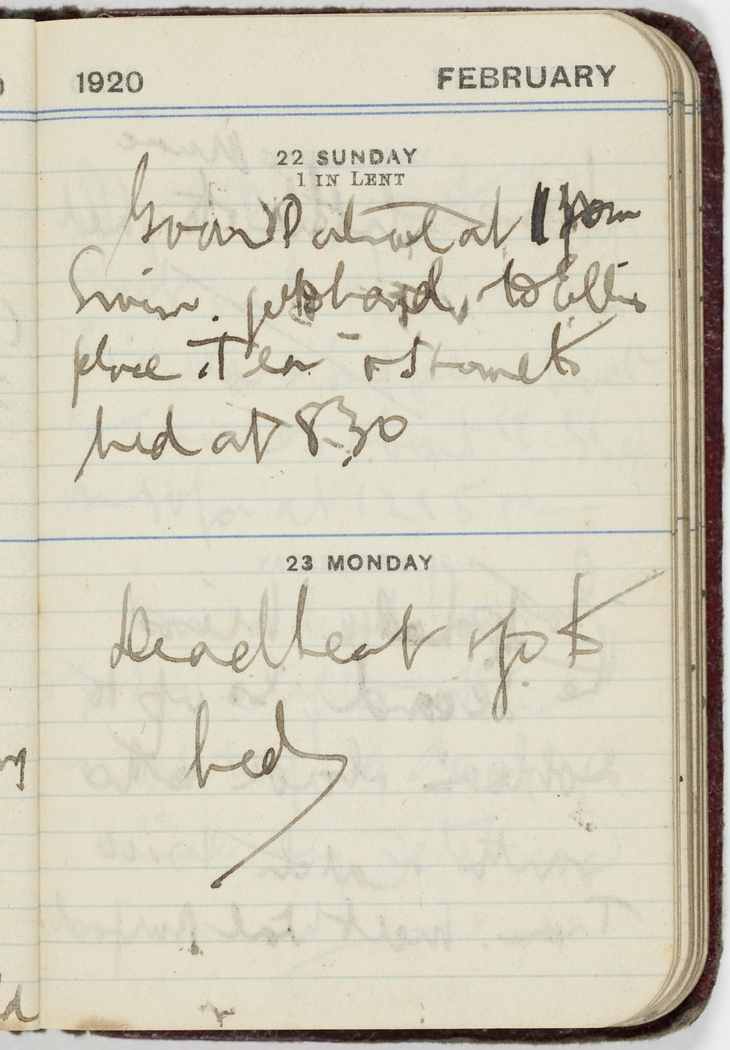 1920 FEBRUARY
22 SUNDAY
1 IN LENT
at
Swim. to Ellis
place. Tea - & Home to
bed at 8.30
23 MONDAY
Deadbeat & go to
bed